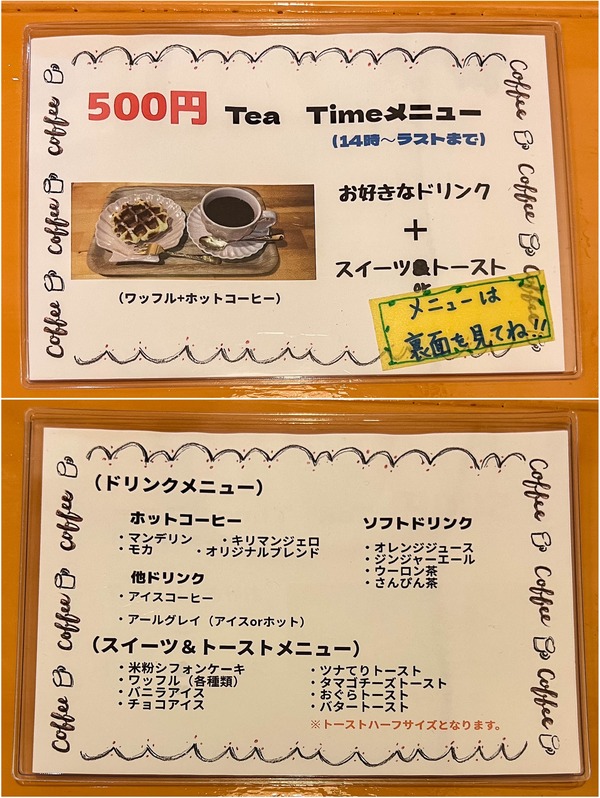 500円 Tea Timeメニュー
(14時～ラストまで)
お好きなドリンク
+
スイーツ&トースト
or
(ワッフル+ホットコーヒー)
メニューは
裏面を見てね!!
Coffee
Coffee
Coffee
Coffee
Coffee
Coffee
(ドリンクメニュー)
ホットコーヒー
・マンデリン ・キリマンジェロ
・モカ ・オリジナルブレンド
他ドリンク
・アイスコーヒー
・アールグレイ(アイスorホット)
ソフトドリンク
・オレンジジュース
・ジンジャーエール
・ウーロン茶
・さんぴん茶
(スイーツ&トーストメニュー)
・米粉シフォンケーキ
・ワッフル(各種類)
・バニラアイス
・チョコアイス
・ツナてりトースト
・タマゴチーズトースト
・おぐらトースト
・バタートースト
※トーストハーフサイズとなります。
Coffee
Coffee
Coffee
Coffee
Coffee
Coffee